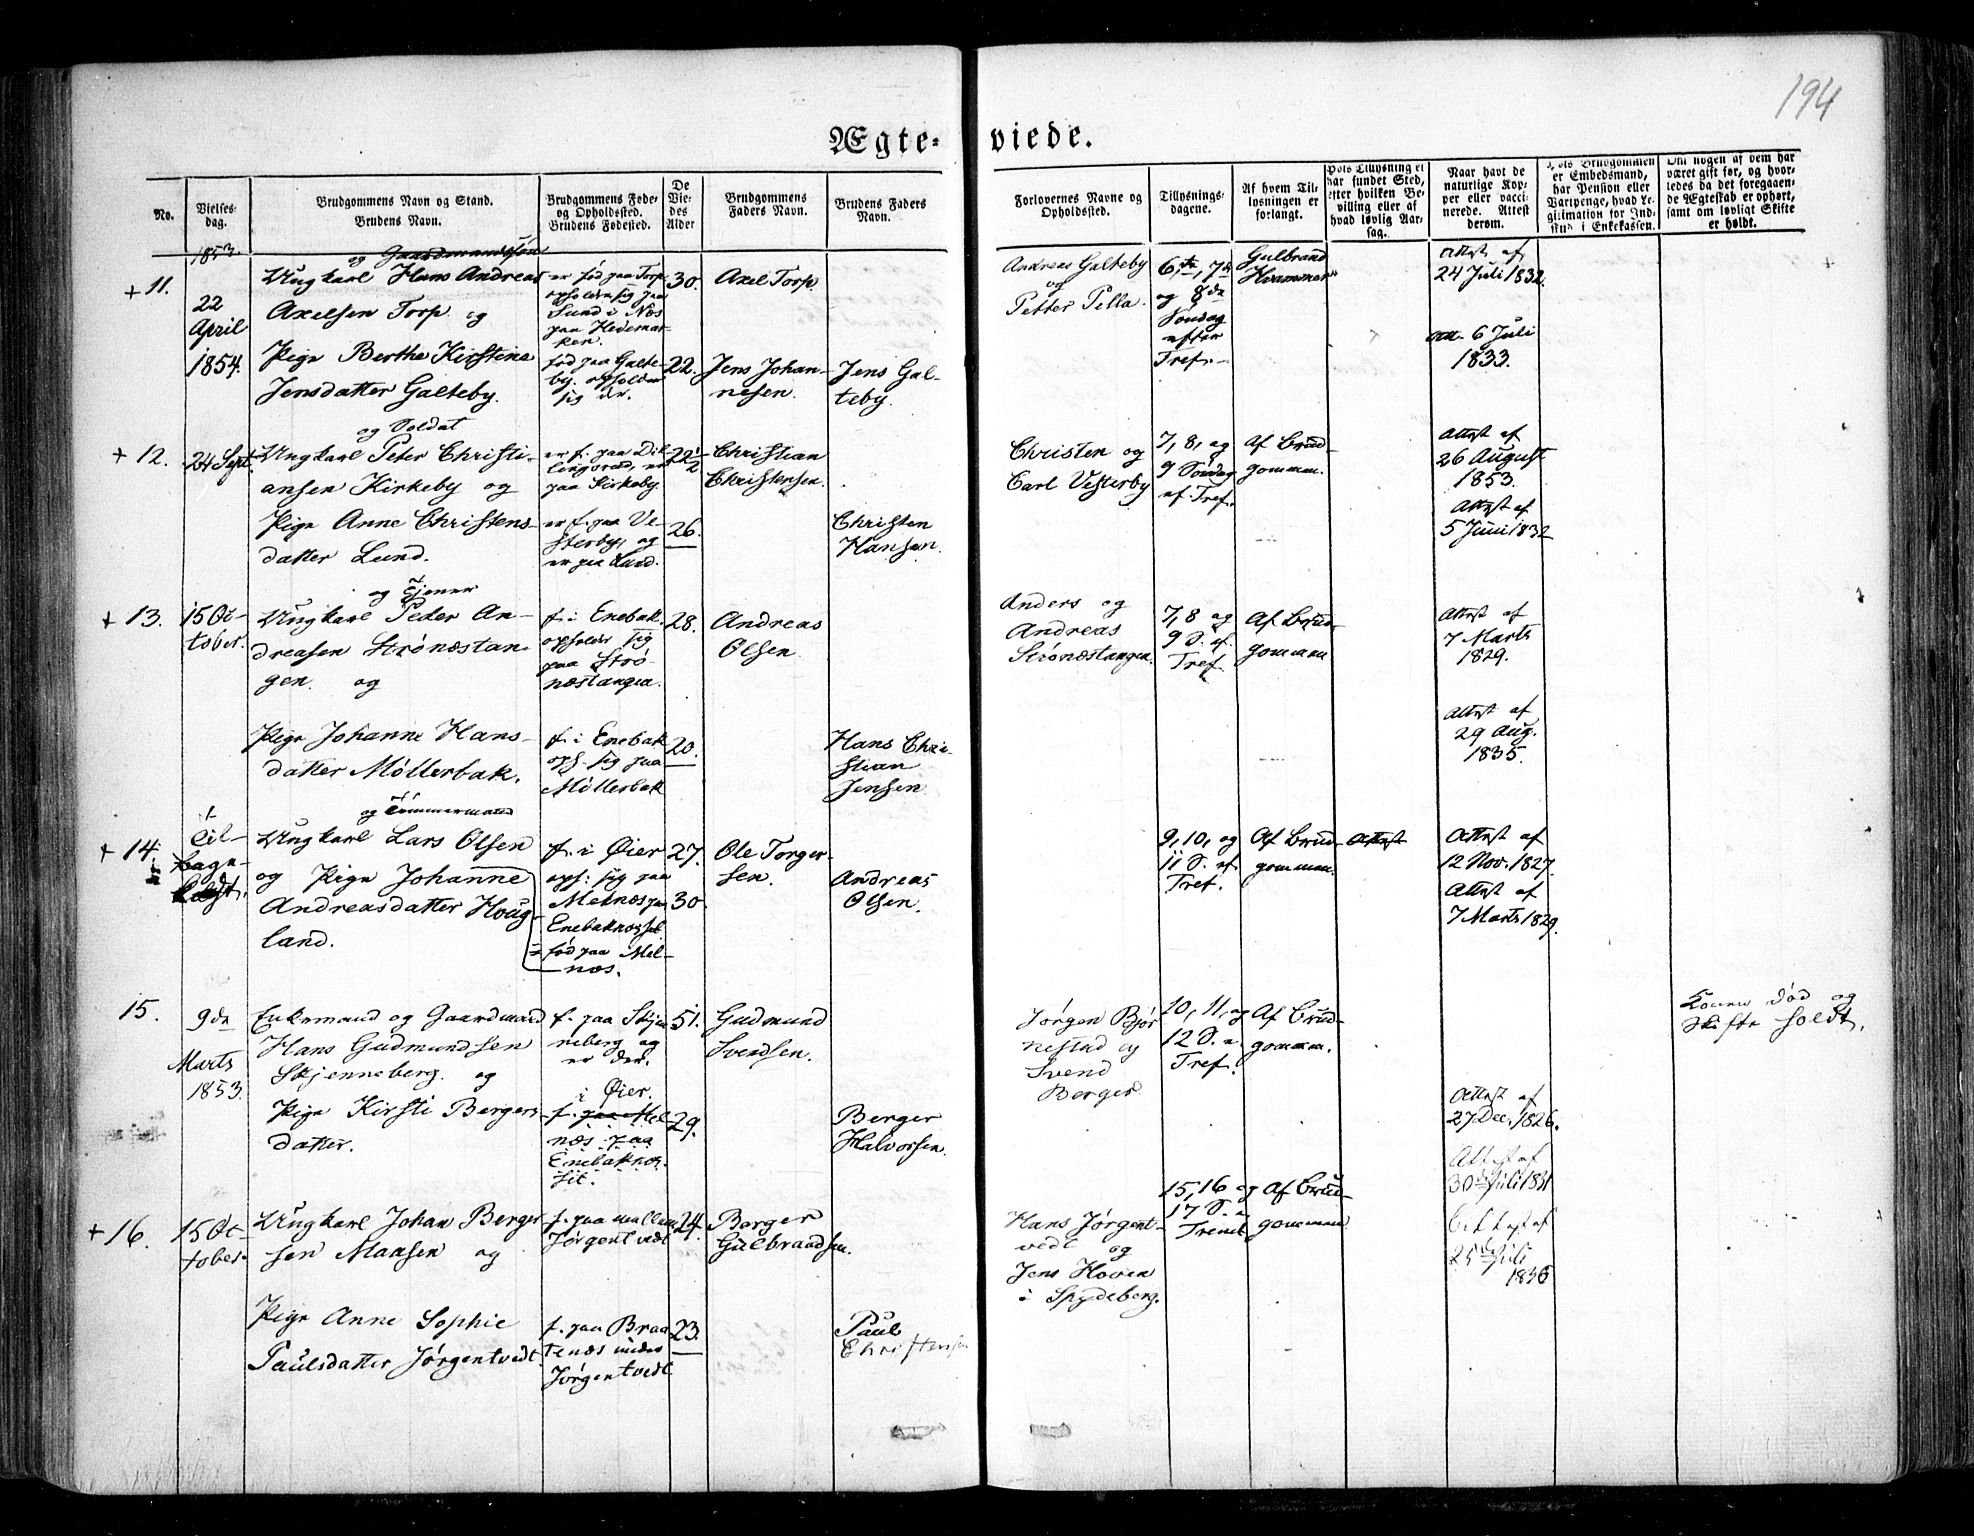 194
Ægte-
viede.
No.
Vielses-
dag.
Brudgommens Navn og Stand.
Brudens Navn.
Brudgommens Føde-
og Opholdssted.
Brudens Fødested.
De
Vie-
des
Alder
Brudgommens
Faders Navn.
Brudens Faders
Navn.
Forlovernes Navne og
Opholdssted.
Tillysnings-
dagene.
Af hvem Til-
lysningen er
forlangt.
Hvis Tillysning ei
har fundet Sted,
efter hvilken Be-
villing eller af
hvad lovlig Aar-
sag.
Naar havt de
naturlige Kop-
per eller vacci-
nerede. Attest
derom.
Hvis Brudgommen
er Embedsmand,
har Pension eller
Vartpenge, hvad Le-
gitimation for Ind-
skud i Enkekassen.
Om nogen af dem har
været gift før, og hvor-
ledes da det foregaaen-
de Ægteskab er ophørt,
samt om lovligt Skifte
er holdt.
1853.
+ 11.
22
April
1854.
og Gaardmandssøn
Ungkarl Hans Andreas
Axelsen Torp og
Pige Berthe Kirstine
Jensdatter Galteby.
er fød paa Torp
opholder sig paa
Lund i Næs
paa Hedemar-
ken.
fød paa Galte-
by. opholder
sig der.
30.
22.
Axel Torp.
Jens Johan-
nesen.
Jens Gal-
teby.
Andreas Galteby
og
Petter Pella.
6te, 7de
og 8de
Søndag
efter
Tref.
Gulbrand
Krammer
Attest af
24 Juli 1832.
Att. 6 Juli
1833.
+ 12.
24 Sept.
og Soldat
Ungkarl Peter Christi-
ansen Kirkeby og
Pige Anne Christens-
datter Lund.
er f. paa Dil-
lingsrud, er
paa Kirkeby.
er f. paa Ve-
sterby, og
er paa Lund.
22 1/2
26.
Christian
Christensen.
Christen
Hansen.
Christen og
Carl Vesterby
7, 8, og
9 Søndag
ef. Tref.
Af Brud-
gommen.
Attest af
26 August
1853.
Attest af
5 Juni 1832
+ 13.
15 Oc-
tober.
og Tjener
Ungkarl Peder An-
dreasen Strønæstan-
gen. og
Pige Johanne Hans-
datter Møllerbak.
f. i Enebak.
opholder sig
paa Strø-
næstangen.
f. i Enebak
oph. sig paa
Møllerbak
28.
20.
Andreas
Olsen.
Hans Chri-
stian
Jensen
Anders og
Andreas
Strønæstangen.
7, 8 og
9 S. ef.
Tref.
Af Brud-
gommen
Attest af
7 Marts
1829.
Attest af
29 Aug.
1835.
+ 14.
Til-
bage-
kaldt.
og Tømmermand
Ungkarl Lars Olsen
og Pige Johanne
Andreasdatter Houg-
land.
f. i Øier
oph: sig paa
Melnæs paa
Enebaknesset
fød paa Mel-
næs.
27.
30.
Ole Torger-
sen.
Andreas
Olsen.
9, 10, og
11 S. ef.
Tref.
Af Brud-
gommen.
Attest
Attest af
12 Nov. 1827.
Attest af
7 Marts 1829.
15.
9de
Marts
1853.
Enkemand og Gaardmand
Hans Gudmundsen
Skjenneberg. og
Pige Kirsti Bergers-
datter.
f. paa Skjen-
neberg og
er der.
i Øier.
f. paa Mel-
næs paa
Enebaknes-
set.
51.
29.
Gudmund
Svendsen.
Berger
Halvorsen.
Jørgen Bjør-
nestad og
Svend
Berger.
10, 11, og
12 S. e.
Tref.
Af Brud-
gommen.
Attest af
27 Dec. 1826.
Konen død og
Skifte holdt.
+ 16.
15 Oc-
tober.
Ungkarl Johan Berger-
sen Maasen og
Pige Anne Sophie
Paulsdatter Jørgentvedt
f. paa mellem
Jørgentvedt
f. paa Braa-
tenæs under
Jørgentvedt
24.
23.
Berger
Gulbrandsen.
Paul
Christensen
Hans Jørgent-
vedt og
Jens Hoven
i Spydeberg.
15, 16 og
17 S. e.
Trenit.
Af Brud-
gommen.
Attest af
30 Juli 1831
Attest af
25de Juli
1836